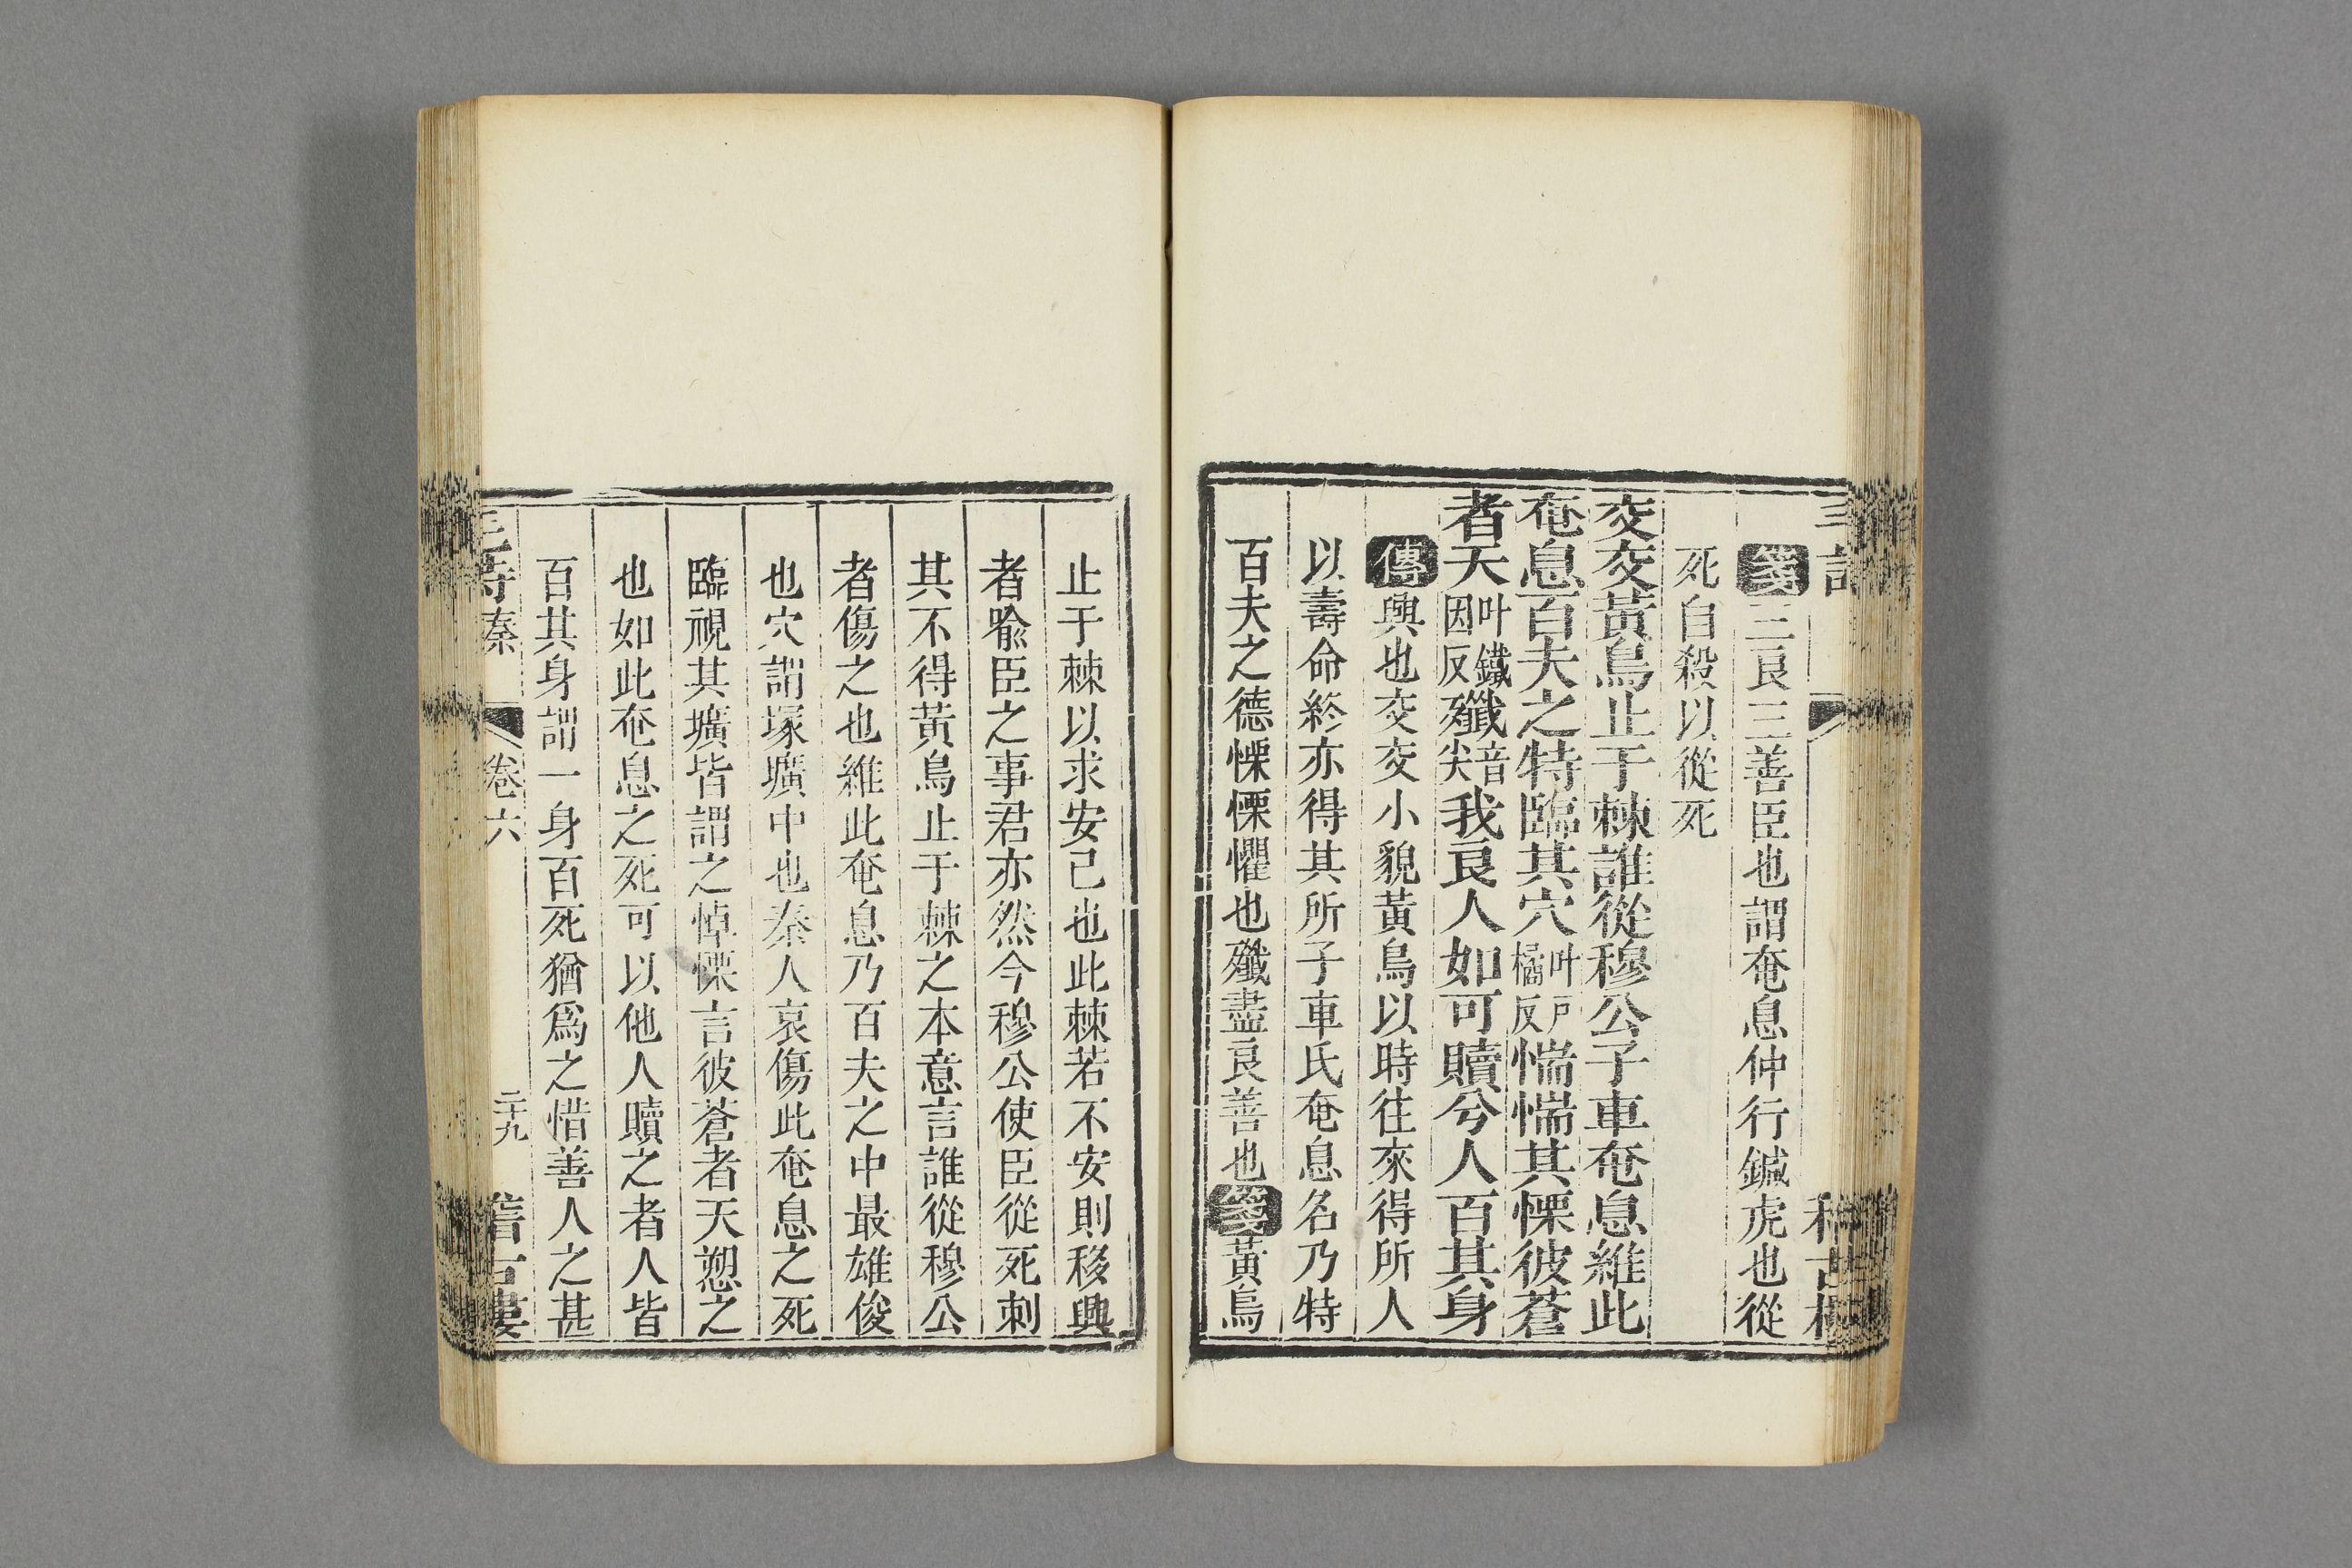 箋三良三善臣也謂奄息仲行鍼虎也從
死自殺以從死
交交黃鳥止于棘誰從穆公子車奄息維此
奄息百夫之特臨其穴叶戸橘反惴惴其慄彼蒼
者天叶鐵因反殲音尖我良人如可贖兮人百其身
傳興也交交小貌黃鳥以時往來得所人
以壽命終亦得其所子車氏奄息名乃特
百夫之德慄慄懼也殲盡良善也箋黃鳥
止于棘以求安己也此棘若不安則移興
者喻臣之事君亦然今穆公使臣從死刺
其不得黃鳥止于棘之本意言誰從穆公
者傷之也維此奄息乃百夫之中最雄俊
也穴謂塚壙中也秦人哀傷此奄息之死
臨視其壙皆謂之悼慄言彼蒼者天愬之
也如此奄息之死可以他人贖之者人皆
百其身謂一身百死猶爲之惜善人之甚
毛詩秦 卷六 二十九 稽古樓